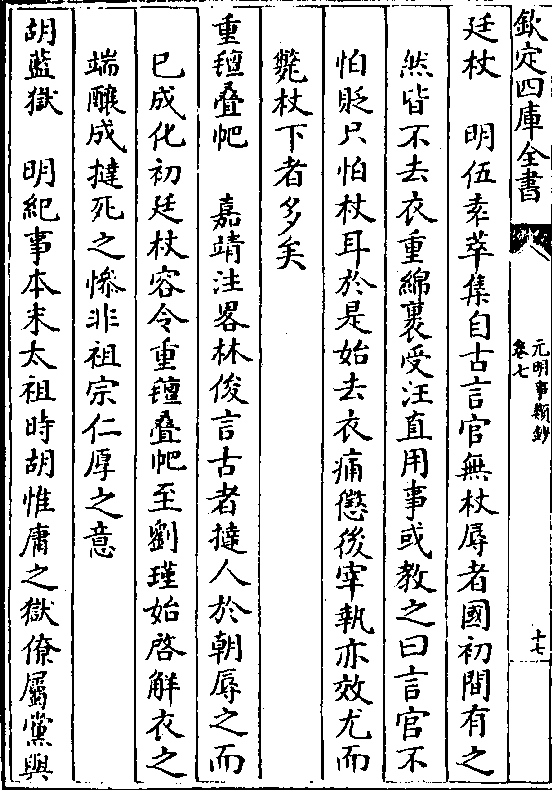 欽定四庫全書
元明事類鈔
卷七
十七
廷杖　明伍袁萃集自古言官無杖辱者國初間有之
然皆不去衣重綿裹受汪直用事或教之曰言官不
怕貶只怕杖耳於是始去衣痛懲後宰執亦效尤而
斃杖下者多矣
重氊叠帊　嘉靖注畧林俊言古者撻人於朝辱之而
已成化初廷杖容令重氊叠帊至劉瑾始啓解衣之
端釀成撻死之慘非祖宗仁厚之意
胡藍獄　明紀事本末太祖時胡惟庸之獄僚屬黨與